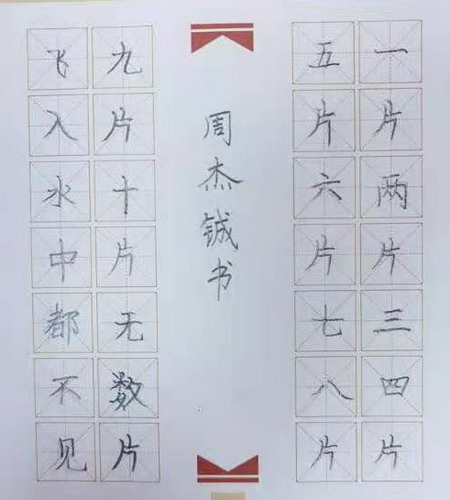 一片两片三四片
五片六片七八片
九片十片无数片
飞入水中都不见
周杰铖书